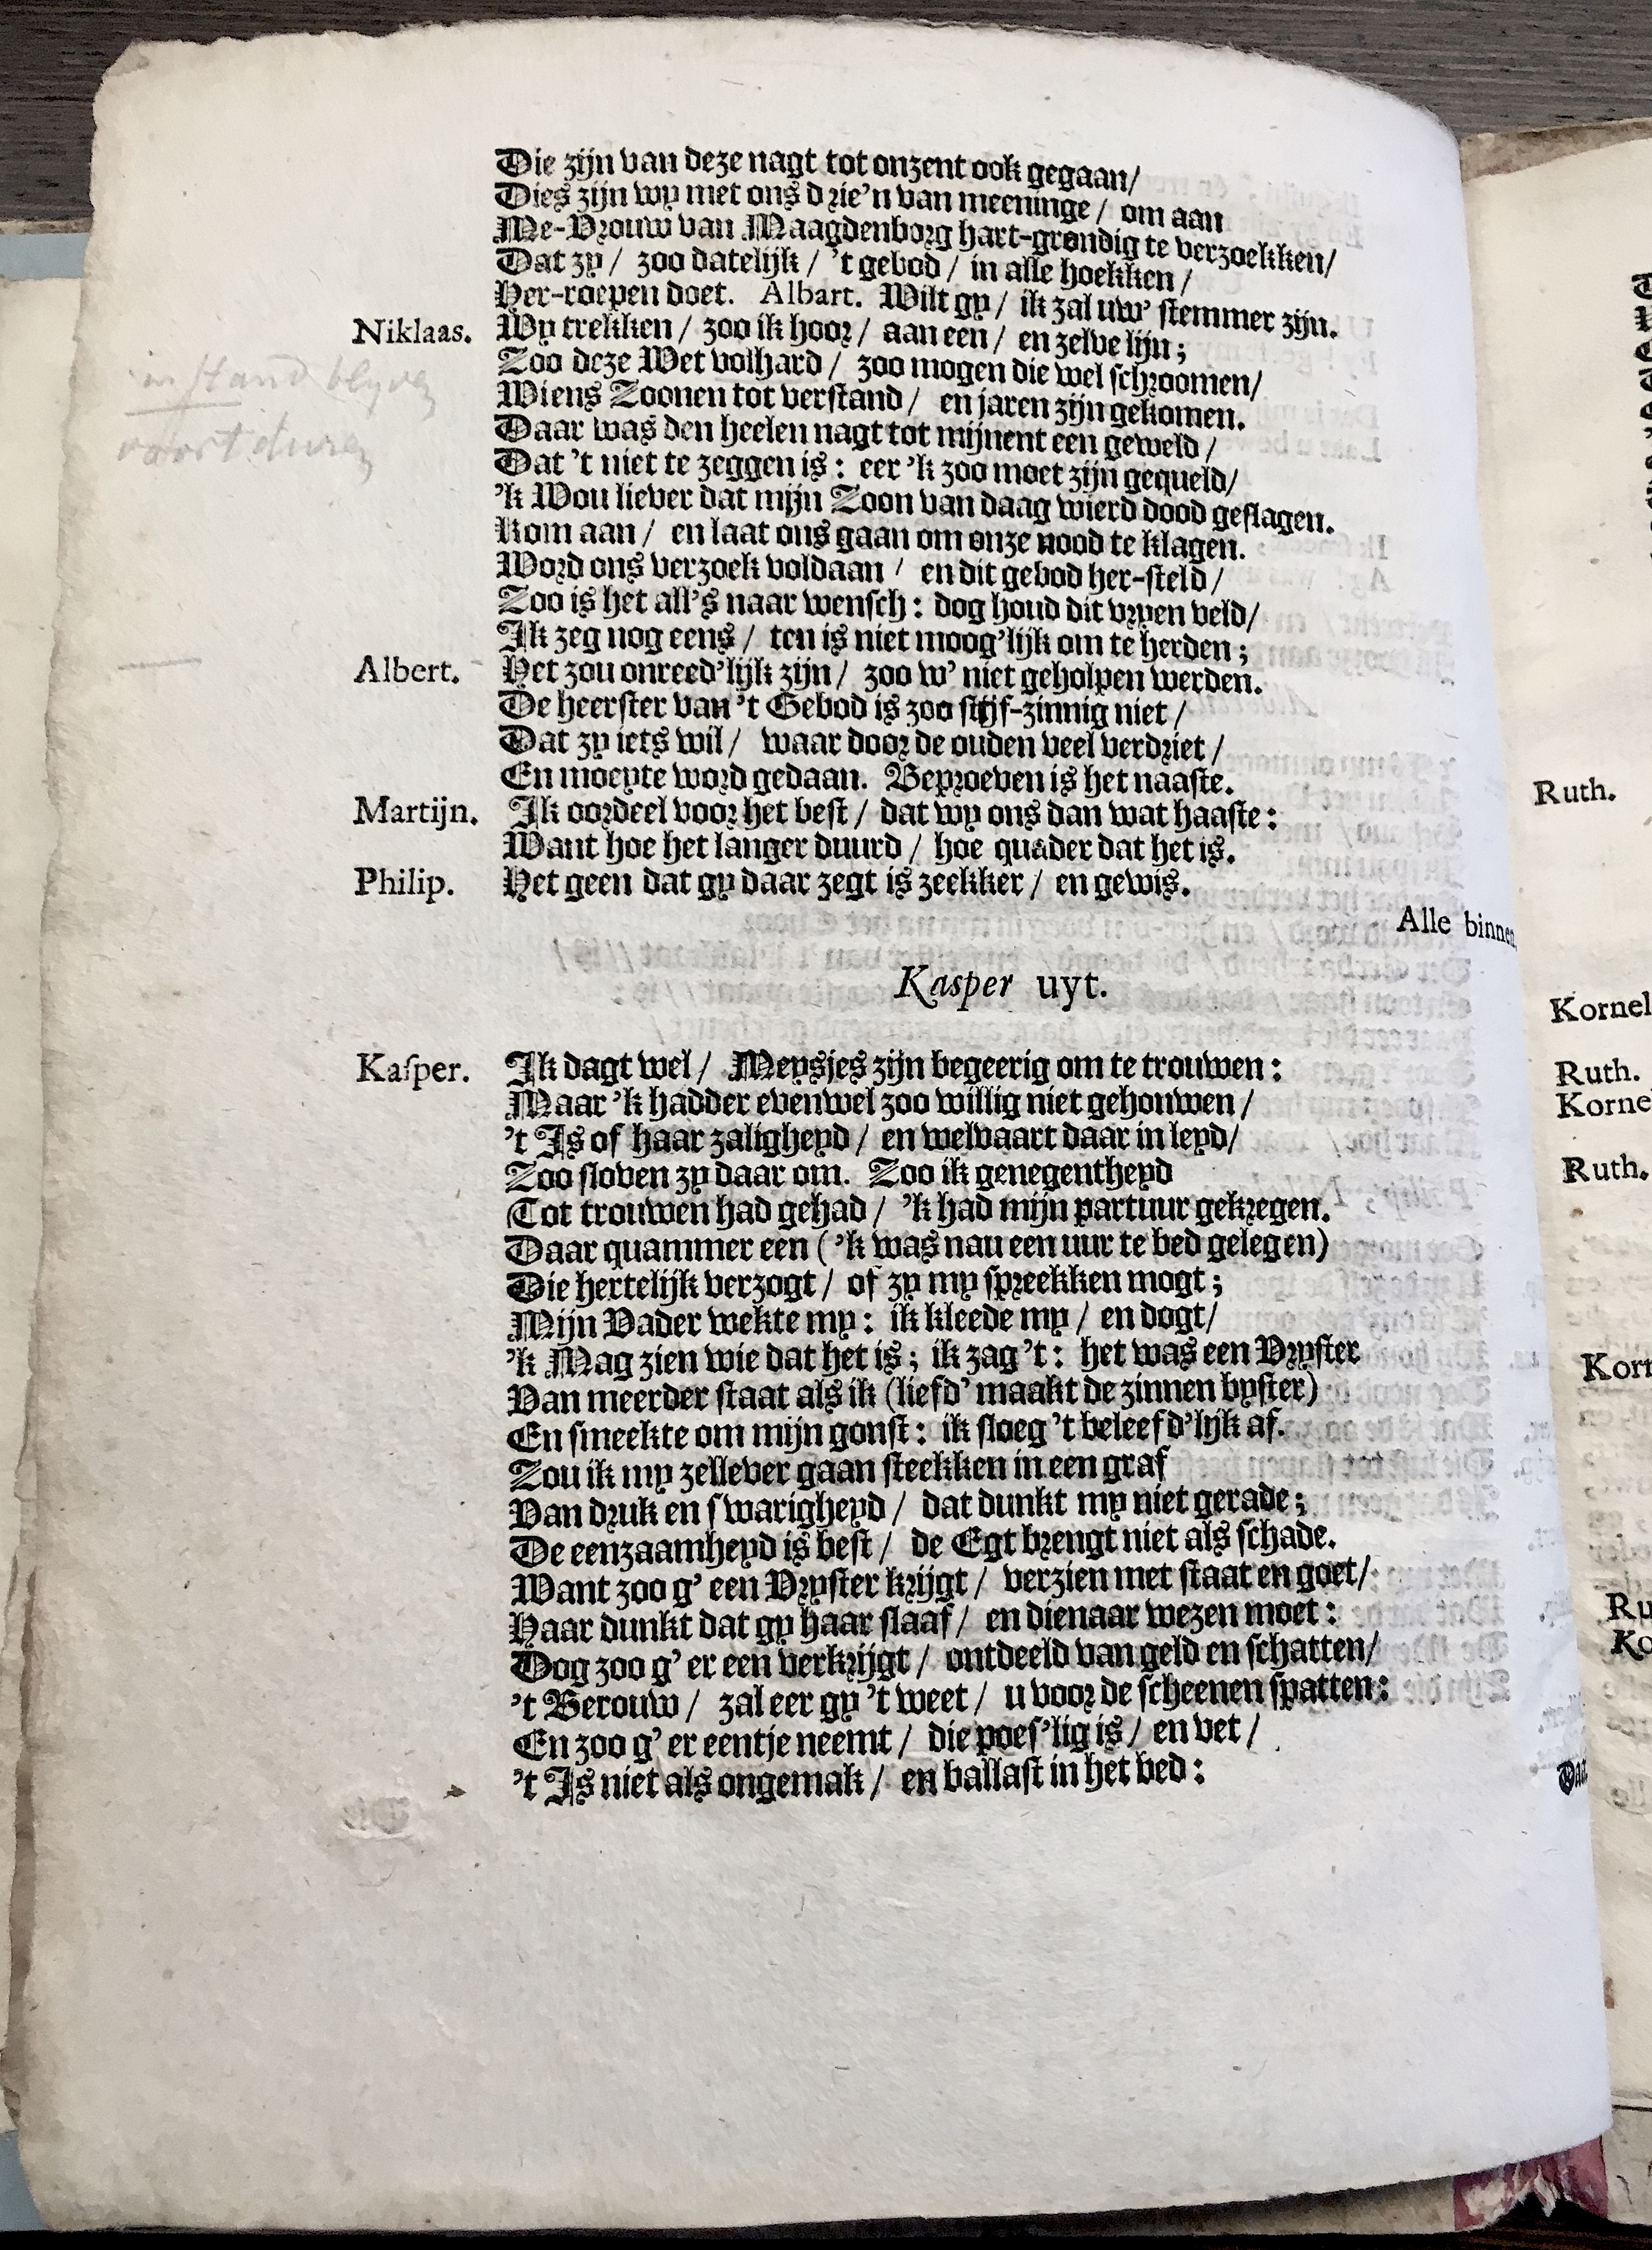 Die zijn van deze nagt tot onzent ook gegaan/
Dies zijn wy met ons drie'n van meeninge / om aan
Me-Vrouw van Maagdenborg hart-grondig te verzoekken/
Dat zy / zoo datelijk / 't gebod / in alle hoekken /
Her-roepen doet. Albart. Wilt gy / ik zal uw' stemmer zijn.
Niklaas. Wy trekken / zoo ik hoor / aan een / en zelve lijn;
Zoo deze Wet volhard / zoo mogen die wel schroomen/
in stand blyven
Wiens Zoonen tot verstand / en jaren zijn gekomen.
Daar was den heelen nagt tot mijnent een geweld /
voortduren
Dat 't niet te zeggen is: eer 'k zoo moet zijn gequeld/
'k Wou liever dat mijn Zoon van daag wierd dood geslagen.
Kom aan / en laat ons gaan om onze nood te klagen.
Word ons verzoek voldaan / en dit gebod her-steld /
Zoo is het all's naar wensch: dog houd dit vryen veld/
Ik zeg nog eens / ten is niet moog'lijk om te herden;
Albert. Het zou onreed'lijk zijn / zoo w' niet geholpen werden.
De heerster van 't Gebod is zoo stijf-zinnig niet /
Dat zy iets wil / waar door de ouden veel verdriet /
En moeyte word gedaan. Beproeven is het naaste.
Martijn. Ik oordeel voor het best / dat wy ons dan wat haaste:
Want hoe het langer duurd / hoe quader dat het is.
Philip. Het geen dat gy daar zegt is zeekker / en gewis.
Alle binnen.
Kasper uyt.
Kasper. Ik dagt wel / Meysjes zijn begeerig om te trouwen:
Maar 'k hadder evenwel zoo willig niet gehouwen /
't Is of haar zaligheyd / en welvaart daar in leyd/
Zoo sloven zy daar om. Zoo ik genegentheyd
Tot trouwen had gehad / 'k had mijn partuur gekregen.
Daar quammer een ('k was nau een uur te bed gelegen)
Die hertelijk verzogt / of zy my spreekken mogt;
Mijn Vader wekte my: ik kleede my / en dogt/
'k Mag zien wie dat het is; ik zag 't: het was een Vryster
Van meerder staat als ik (liefd' maakt de zinnen byster)
En smeekte om mijn gonst: ik sloeg 't beleefd'lijk af.
Zou ik my zellever gaan steekken in een graf
Van druk en swarigheyd / dat dunkt my niet gerade;
De eenzaamheyd is best / de Egt brengt niet als schade.
Want zoo g' een Vryster krijgt / verzien met staat en goet/
Haar dunkt dat gy haar slaaf / en dienaar wezen moet:
Dog zoo g' er een verkrijgt / ontdeeld van geld en schatten/
't Berouw / zal eer gy 't weet / u voor de scheenen spatten:
En zoo g' er eentje neemt / die poes'lig is / en vet /
't Is niet als ongemak / en ballast in het bed:
Ruth.
Ruth.
Ruth.